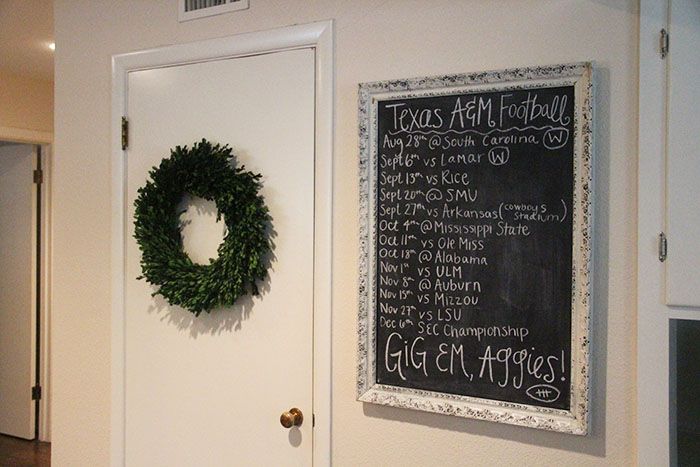 Texas A&M Football
Aug 28th @ South Carolina W
Sept 6th vs Lamar W
Sept 13th vs Rice
Sept 20th @ SMU
Sept 27th vs Arkansas (cowboys stadium)
Oct 4th @ Mississippi State
Oct 11th vs Ole Miss
Oct 18th @ Alabama
Nov 1st vs ULM
Nov 8th @ Auburn
Nov 15th vs Mizzou
Nov 27th vs LSU
Dec 6th SEC Championship
GiG EM, Aggies!